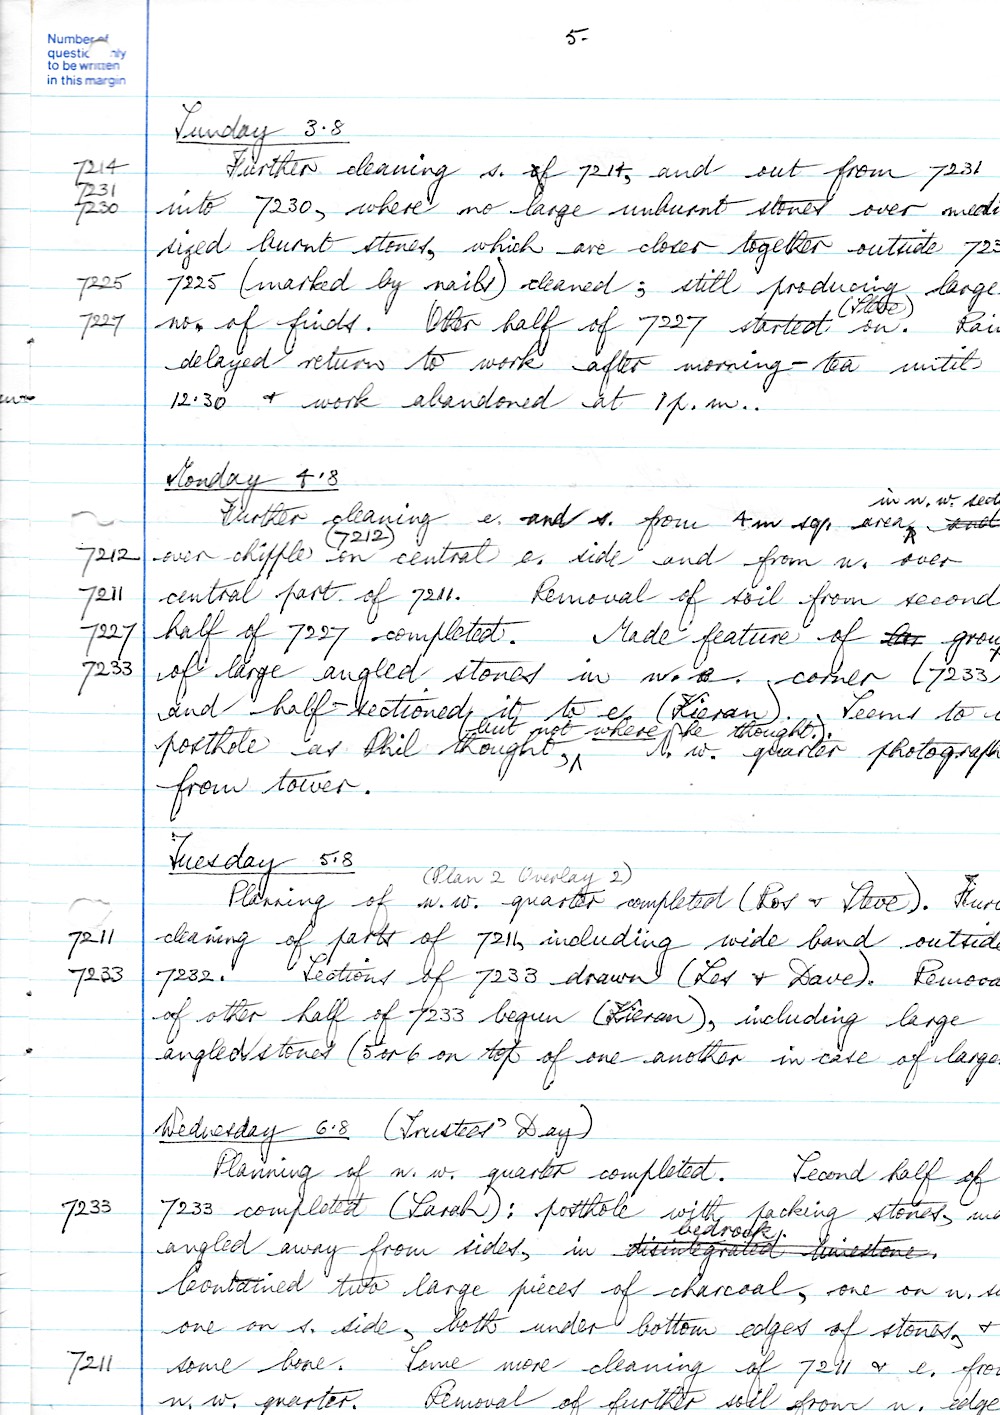 Number of
questions only
to be written
in this margin
5.
Sunday 3.8
7214 Further cleaning s. of 7214, and out from 7231
7231
7230 into 7230, where no large unburnt stones over medi
sized burnt stones, which are closer together outside 723
7225 7225 (marked by nails) cleaned; still producing large
(Steve)
7227 no. of finds. Other half of 7227 started on. Rai
delayed return to work after morning-tea until
12.30 + work abandoned at 1 p.m..
Monday 4.8
in n.w. sect
Further cleaning e. and s. from 4m sq. area, and
(7212)
7212 over chipple on central e. side and from n. over
7211 central part of 7211. Removal of soil from second
7227 half of 7227 completed. Made feature of group
7233 of large angled stones in n.e. corner (7233)
and half-sectioned it to e. (Kieran). Seems to
(but not where he thought.)
posthole as Phil thought, N.w. quarter photograph
from tower.
Tuesday 5.8
(Plan 2 Overlay 2)
Planning of n.w. quarter completed (Ros + Steve). Furt
7211 cleaning of parts of 7211, including wide band outside
7233 7232. Sections of 7233 drawn (Les + Dave). Remova
of other half of 7233 begun (Kieran), including large
angled stones (5 or 6 on top of one another in case of large
Wednesday 6.8 (Trustees' Day)
Planning of n.w. quarter completed. Second half of
7233 7233 completed (Sarah): posthole with packing stones,
bedrock.
angled away from sides, in disintegrated limestone.
Contained two large pieces of charcoal, one on n. s
one on s. side, both under bottom edges of stones, +
7211 some bone. Some more cleaning of 7211 + e. fro
n.w. quarter. Removal of further soil from n. edge